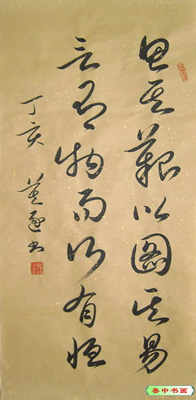 思其艱以圖其易
言有物而行有恒
丁亥
中书画